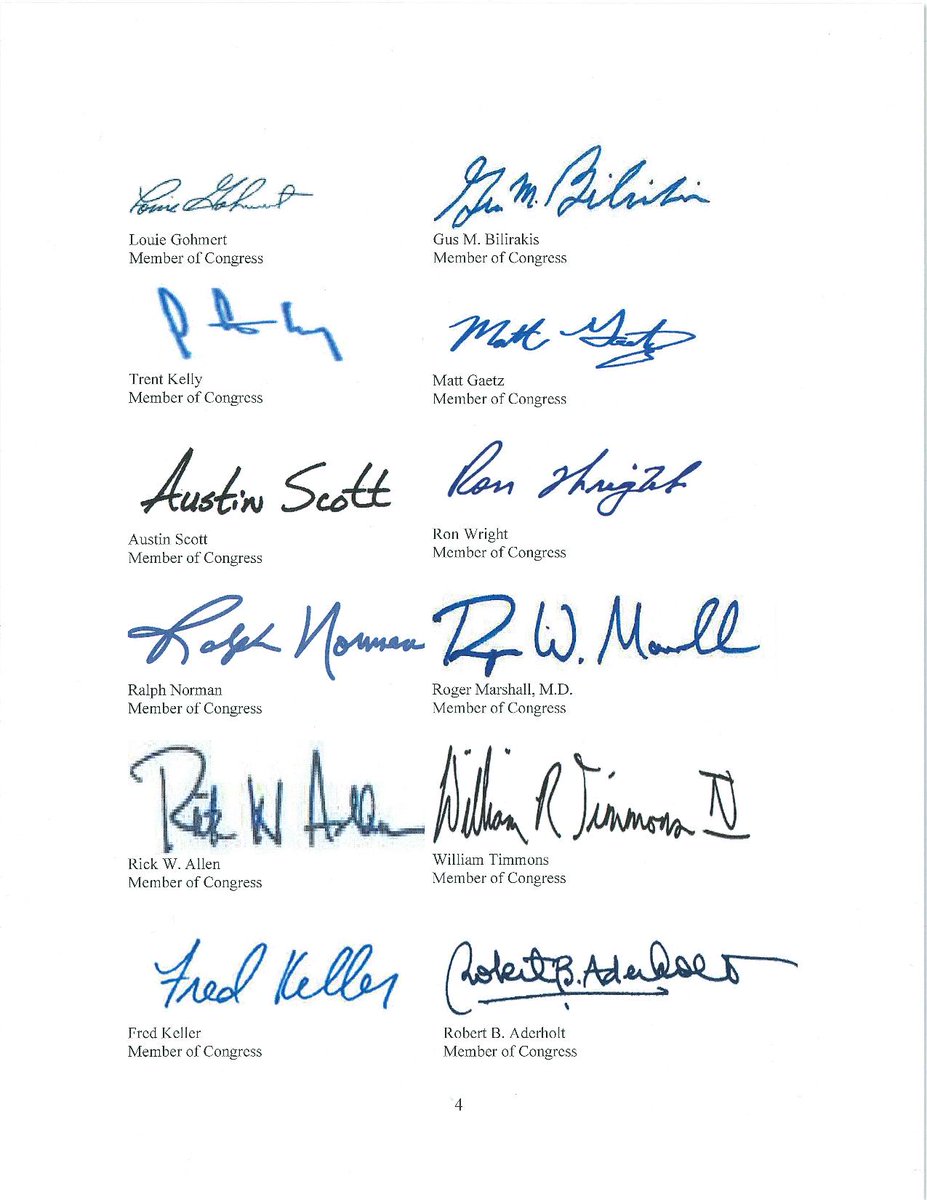 Louie Gohmert Gus M. Bilirakis
Louie Gohmert Gus M. Bilirakis
Member of Congress Member of Congress
Matt Gaetz
Trent Kelly Matt Gaetz
Member of Congress Member of Congress
Austin Scott Ron Wright
Austin Scott Ron Wright
Member of Congress Member of Congress
Ralph Norman W. Marshall
Ralph Norman Roger Marshall, M.D.
Member of Congress Member of Congress
Rick W Allen William R Timmons IV
Rick W. Allen William Timmons
Member of Congress Member of Congress
Fred Keller Robert B. Aderholt
Fred Keller Robert B. Aderholt
Member of Congress Member of Congress
4